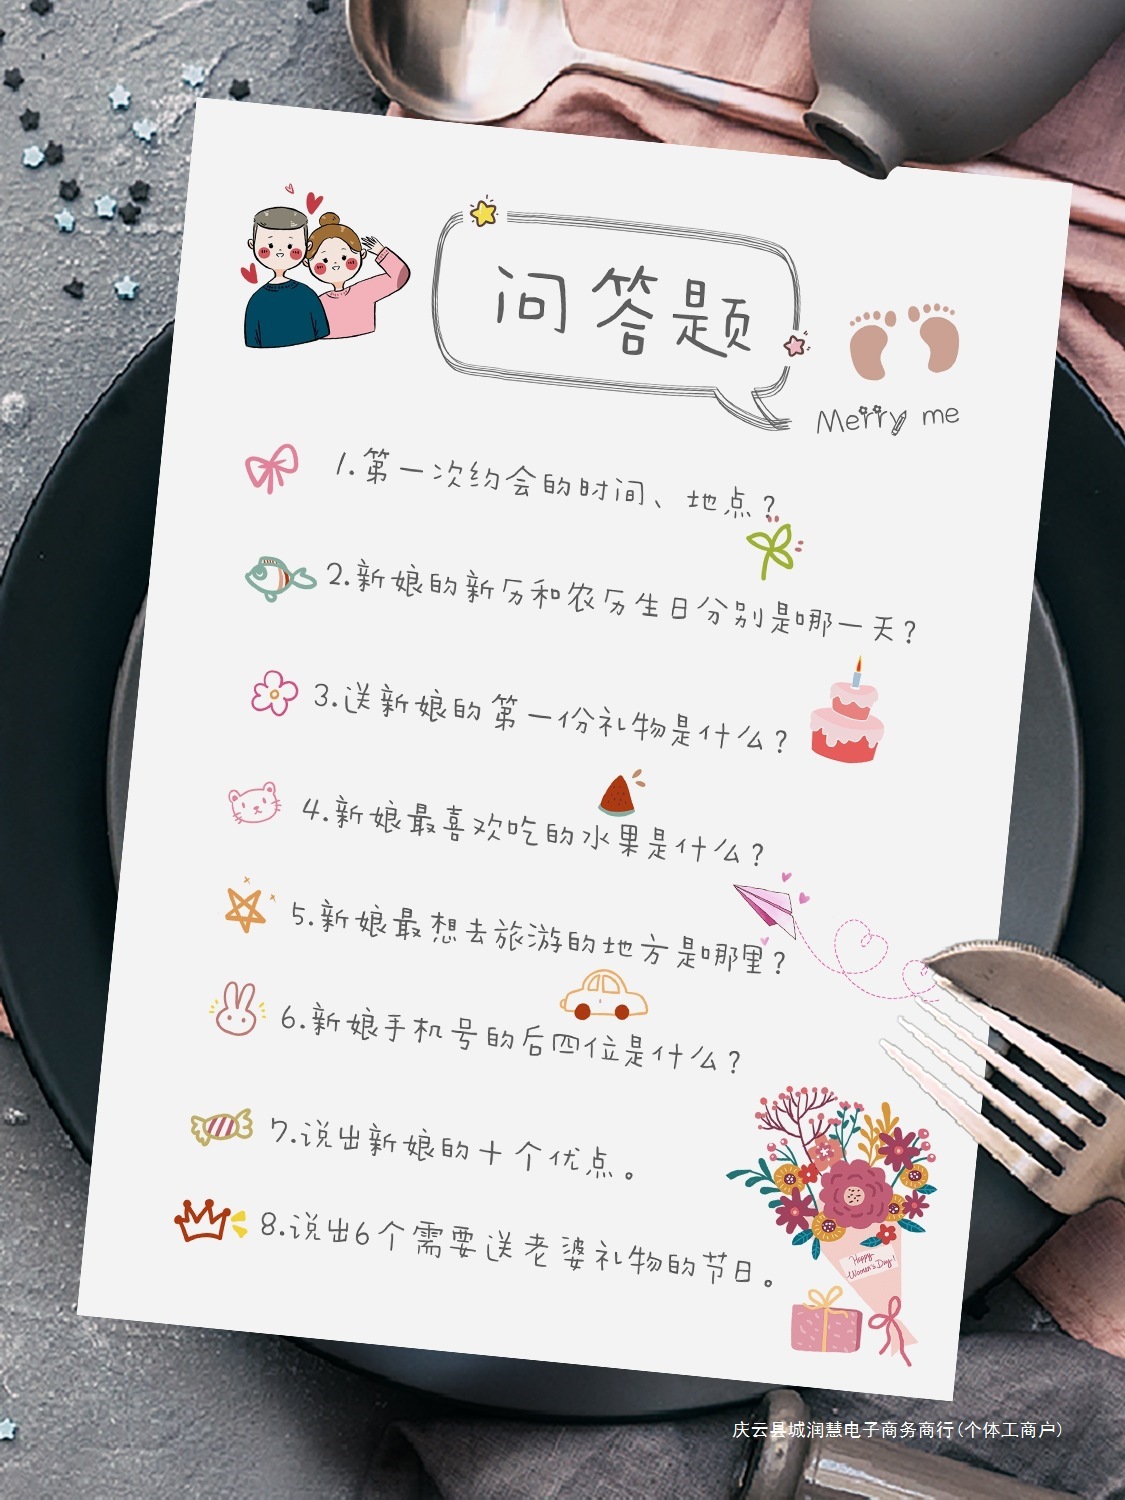 问答题
Merry me
1.第一次约会的时间、地点?
2.新娘的新历和农历生日分别是哪一天?
3.送新娘的第一份礼物是什么?
4.新娘最喜欢吃的水果是什么?
5.新娘最想去旅游的地方是哪里?
6.新娘手机号的后四位是什么?
7.说出新娘的十个优点。
8.说出6个需要送老婆礼物的节日。
Happy
Women's Day!
庆云县城润慧电子商务商行(个体工商户)